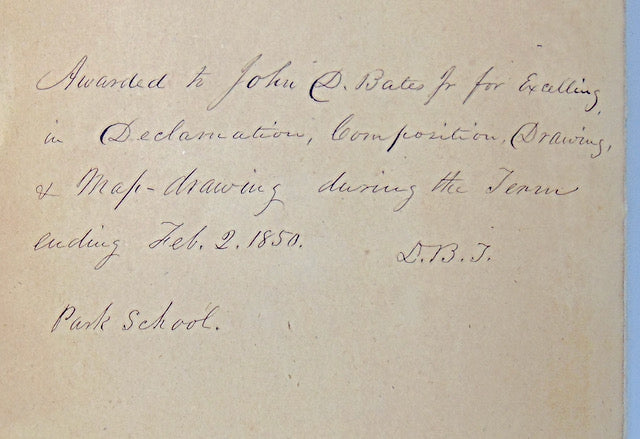 Awarded to John D. Bates Jr for Excelling,
in Declamation, Composition, Drawing,
& Map-drawing during the Term
ending Feb. 2. 1850.
D. B. T.
Park School.